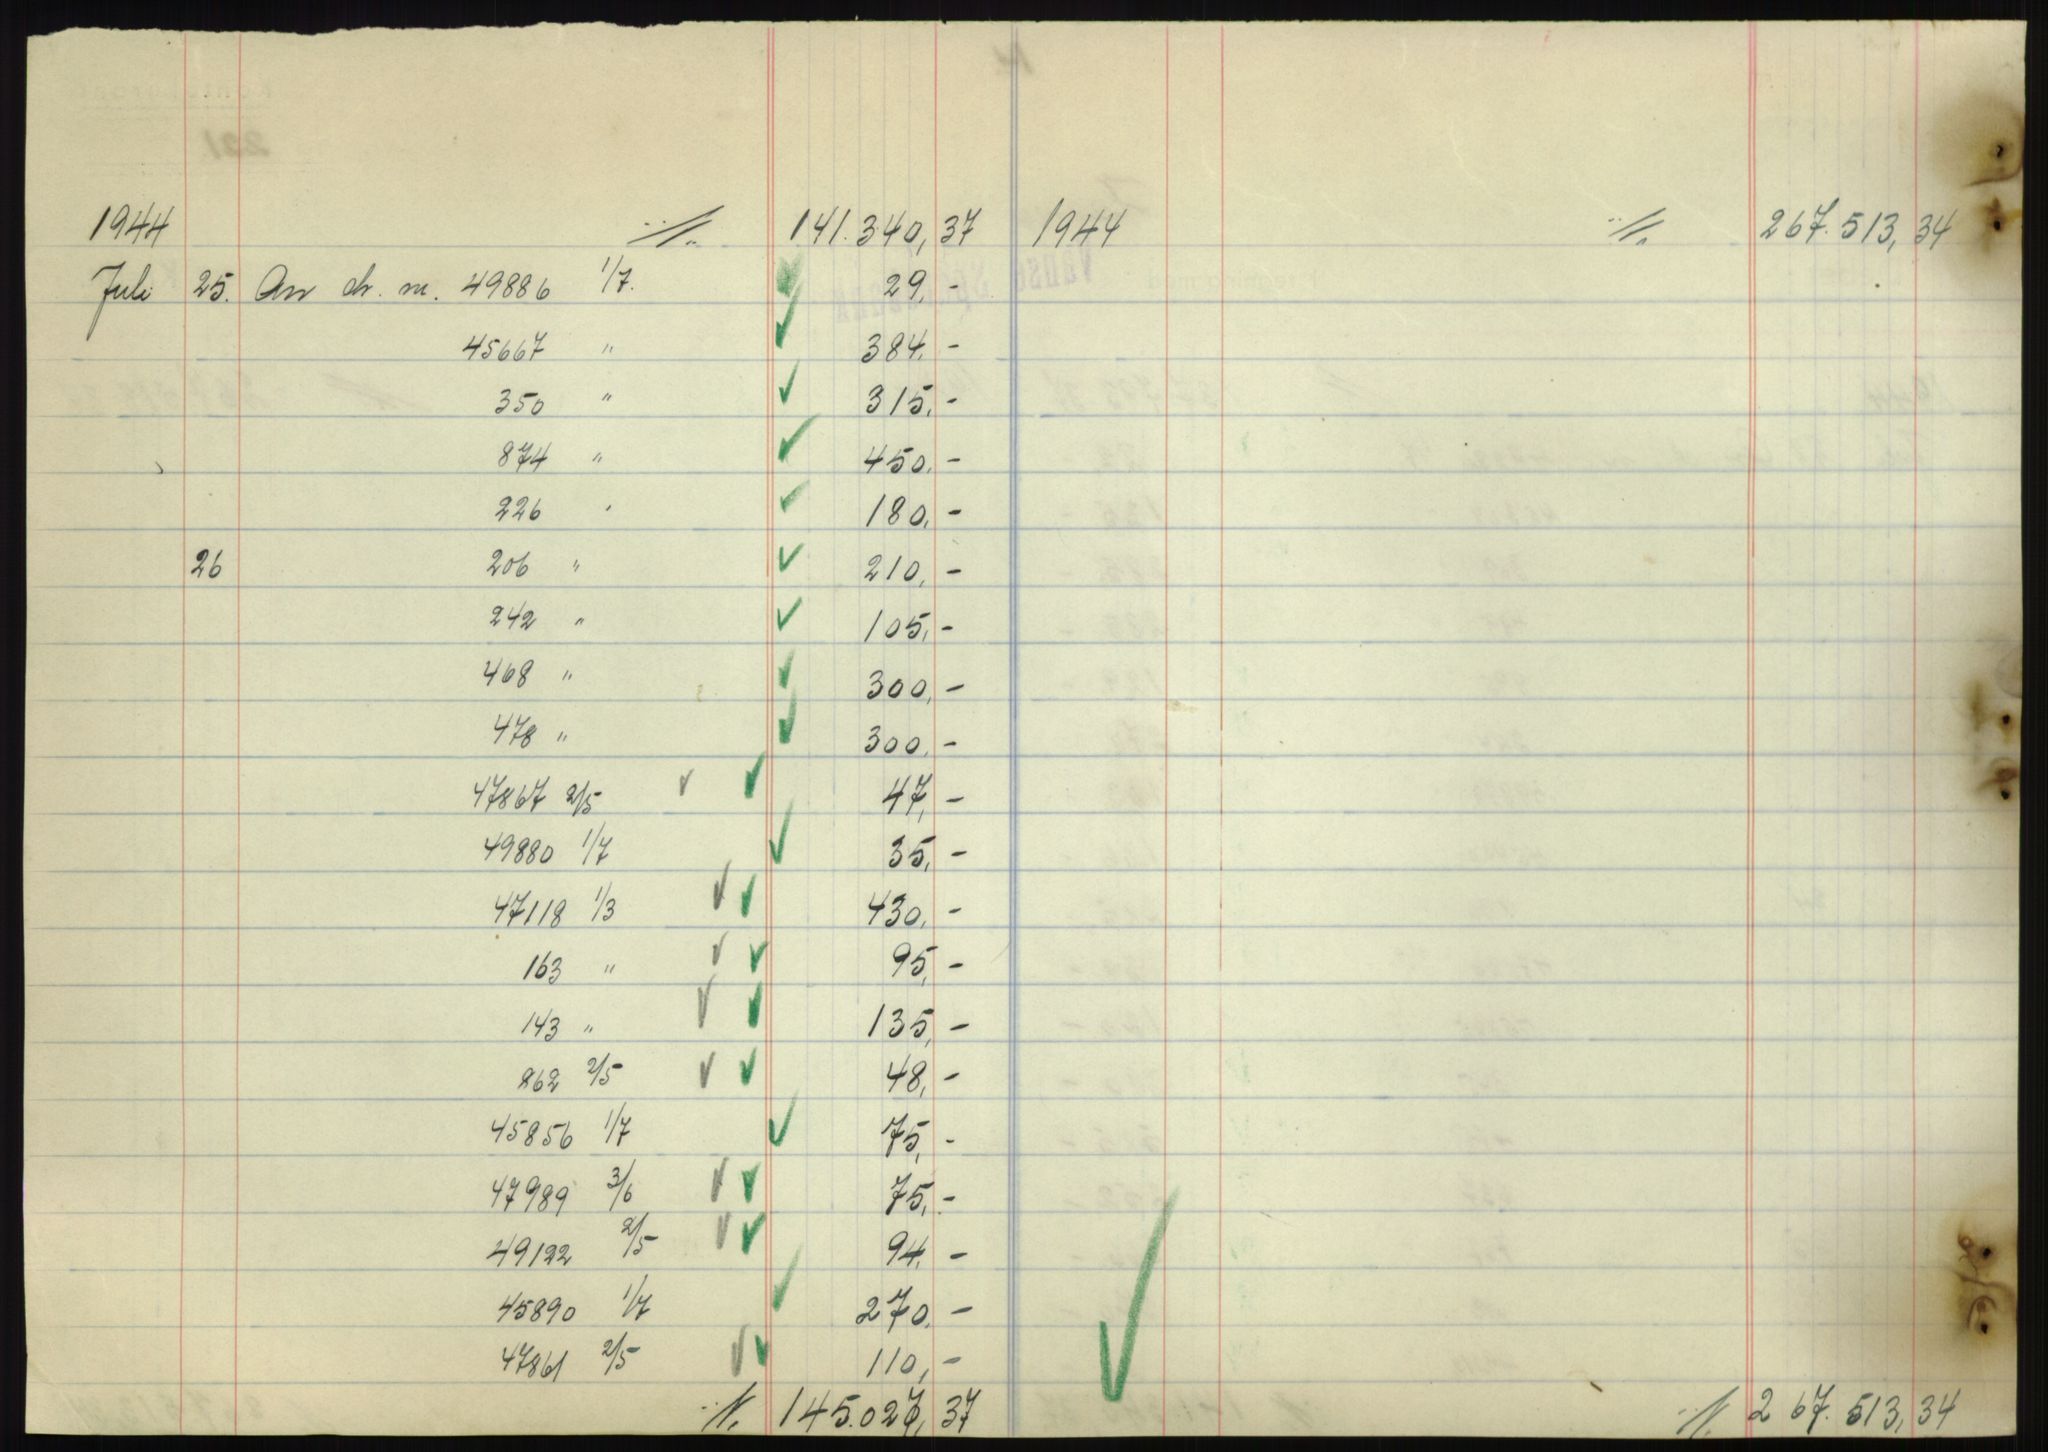 1944 141.340,37 1944 267.513,34
Juli 25. An ch. m. 49886 1/7. 29,-
45667 " 384,-
350 " 315,-
874 " 450,-
226 " 180,-
26 206 " 210,-
242 " 105,-
468 " 300,-
478 " 300,-
47867 2/5 47,-
49880 1/7 35,-
47118 1/3 430,-
163 " 95,-
143 " 135,-
862 2/5 48,-
45856 1/7 75,-
47989 3/6 75,-
49122 2/5 94,-
45890 1/7 270,-
47861 2/5 110,-
145.027,37 267.513,34